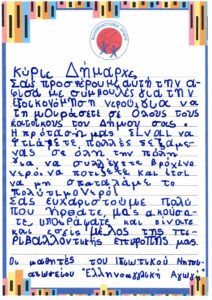 κύριε Δήμαρχε,
Σας προσφέρουμε αυτή την α-
φίσα με συμβουλές για την
εξοικονόμηση νερού, για να
τη μοιράσετε σε όλους τους
κατοίκους του Δήμου σας.
Η πρότασή μας είναι να
φτιάξετε, πολλές δεξαμε-
νές σε όλη την πόλη
για να συλλέγετε βρόχινο
νερό, να ποτίζετε και έτσι
να μη σπαταλάμε το
πολύτιμο νερό!
Σας ευχαριστούμε πολύ
που ήρθατε, μας ακούσα-
τε, υπογράψατε και γίνατε
και εσείς μέλος της πε-
ριβαλλοντικής επιτροπής μας.
Οι μαθητές του Ιδιωτικού Νηπι-
αγωγείου "Ελληνοαγγλική Αγωγή"